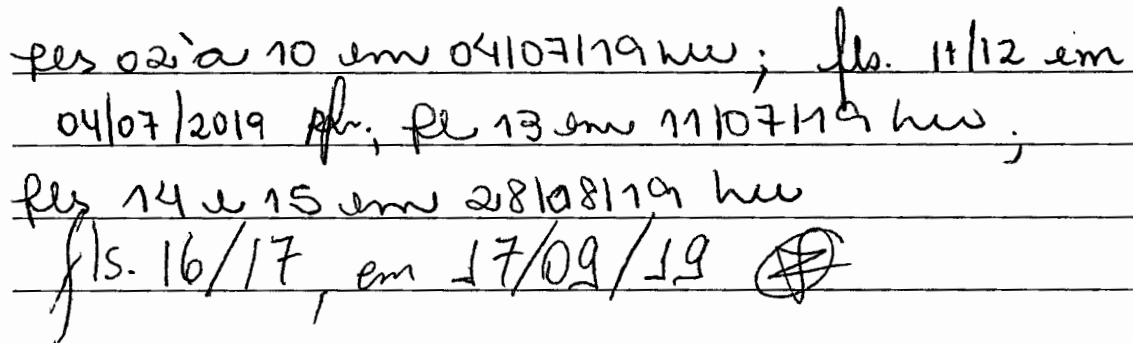 fls 02 à 10 em 04/07/19 hw; fls. 11/12 em
04/07/2019 ; fl 13 em 11/07/19 hw;
fls 14 e 15 em 28/08/19 hw
fls. 16/17, em 17/09/19